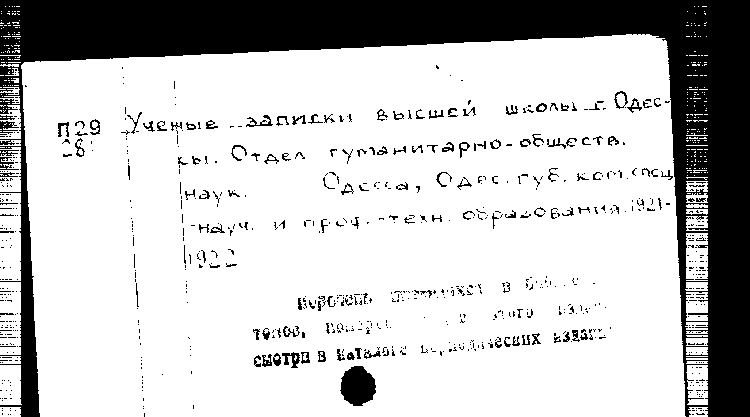 П29 Ученые записки высшей школы г. Одес-
28 сы. Отдел гуманитарно-обществ.
наук. Одесса, Одес. губ. ком. спец
-науч. и проф.-техн. образования. 1921-
1922
Перечень имеющихся в
томов, номеров этого
смотри в каталоге периодических изданий